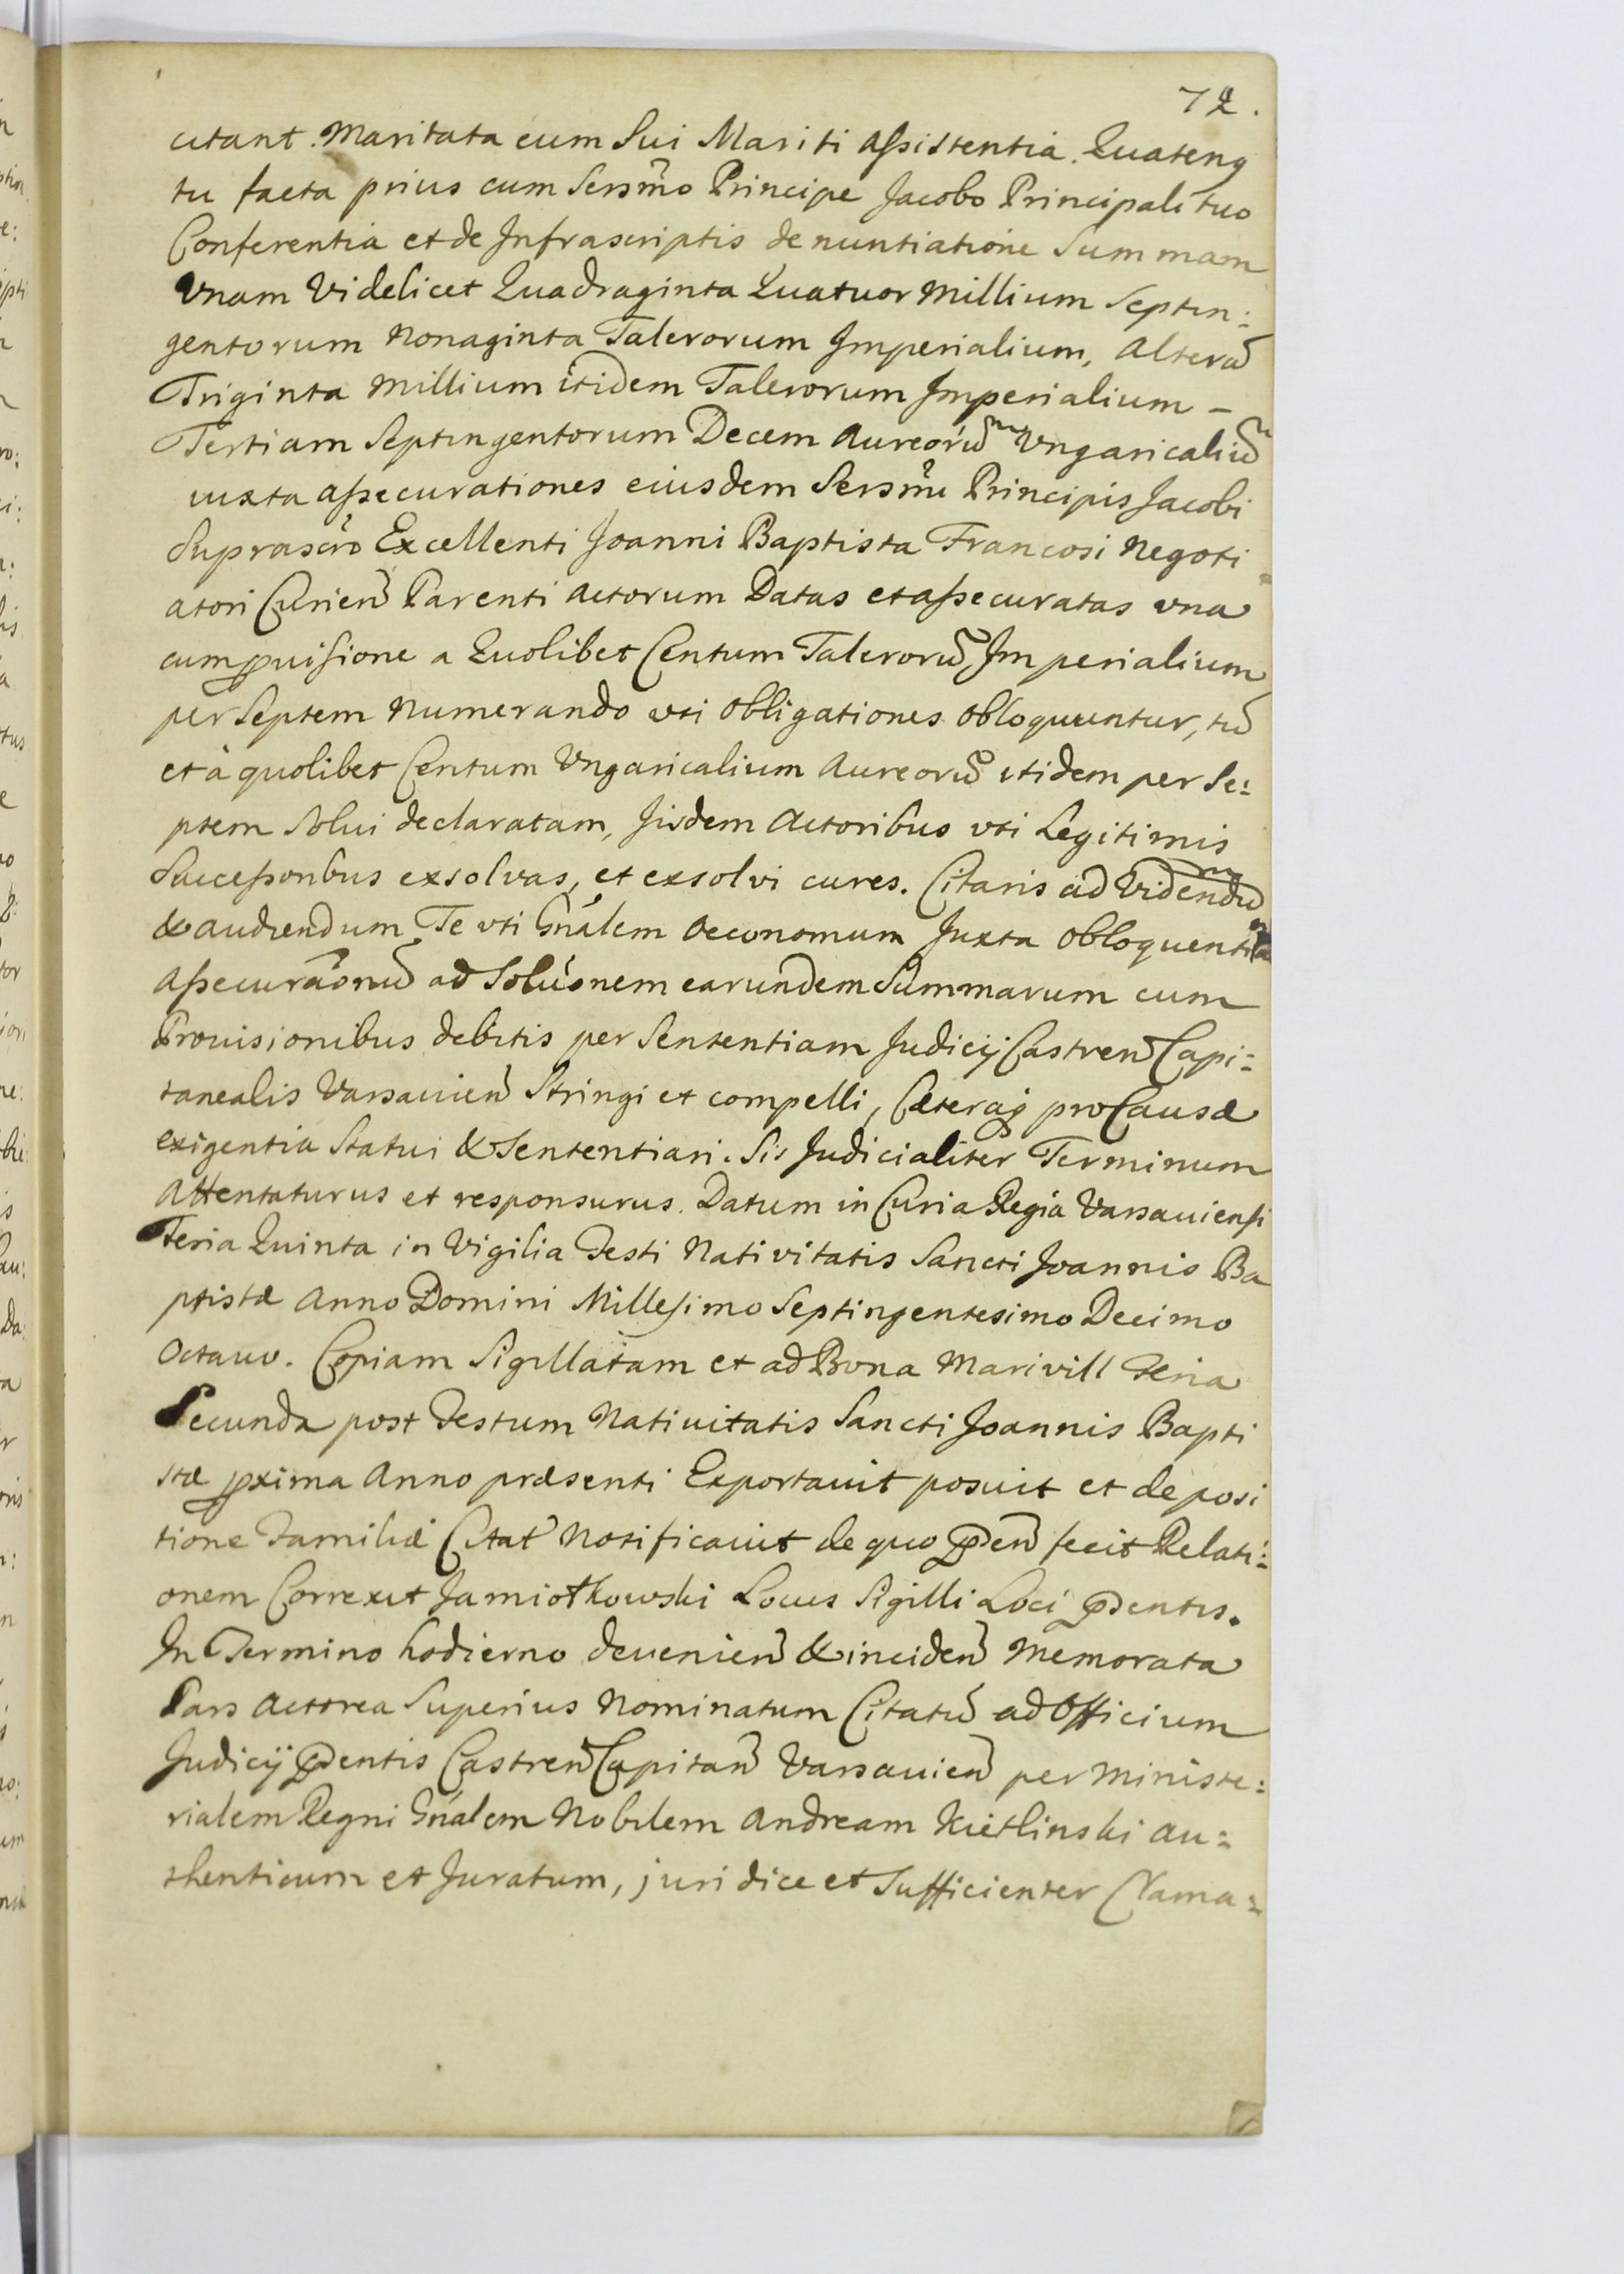 72.
citant. Maritata cum Sui Mariti assistentia. Quateng
tu facta prius cum Sersm̃o Principe Jacobo Principali tuo
Conferentia et de Infrascriptis denuntiatione Summam
Vnam Videlicet Quadraginta Quatuor Millium Septin:
gentorum Nonaginta Talerorum Imperialium, Alterã
Triginta Millium itidem Talerorum Imperialium –
Tertiam Septingentorum Decem Aureorũ Vngaricaliũ
iuxta assecurationes eiusdem Sersm̃i Principis Jacobi
Suprascr̃o Excellenti Joanni Baptista Francosi Negoti
atori Curieñ Parenti Actorum Datas et assecuratas vna
cum prouisione a Quolibet Centum Talerorũ, Imperialium
per Septem Numerando vti Obligationes Obloquuntur, tũ
et à quolibet Centum Vngaricalium Aureorũ itidem per Se:
ptem Solui declaratam, Iisdem Actoribus vti Legitimis
Successoribus exsolvas, et exsolvi cures. Citaris ad Videndũ
& audiendum Te vti Gñalem Oeconomum Juxta Obloquentiã
Assecurãonũ ad Soluõnem earundem Summarum cum
Prouisionibus debitis per Sententiam Judicij Castreñ Capi:
tanealis Varsauieñ Stringi et compelli, Cæteraq pro Causæ
exigentia Statui & Sententiari. Sis Judicialiter Terminum
Attentaturus et responsurus. Datum in Curia Regia Varsauiensi
Feria Quinta in Vigilia Festi Nativitatis Sancti Joannis Ba
ptistæ Anno Domini Millesimo Septingentesimo Decimo
Octauo. Copiam Sigillatam et ad Bona Marivill Feria
Secunda post Festum Natiuitatis Sancti Joannis Bapti
stæ pxima Anno præsenti Exportauit posuit et de posi
tione Familiæ Citat̃ Notificauit de quo pñdeñ fecit Relati:
onem Correxit Jamiołkowski Locus Sigilli Loci pñdentis.
In Termino hodierno deuenieñ & incideñ Memorata
Pars Actorea Superius Nominatum Citatũ ad Officium
Judicij pñdentis Castreñ Capitañ Varsauieñ per Ministe:
rialem Regni Gñalem Nobilem Andream Kietlinski au:
thenticum et Juratum, juridice et Sufficienter Clama: